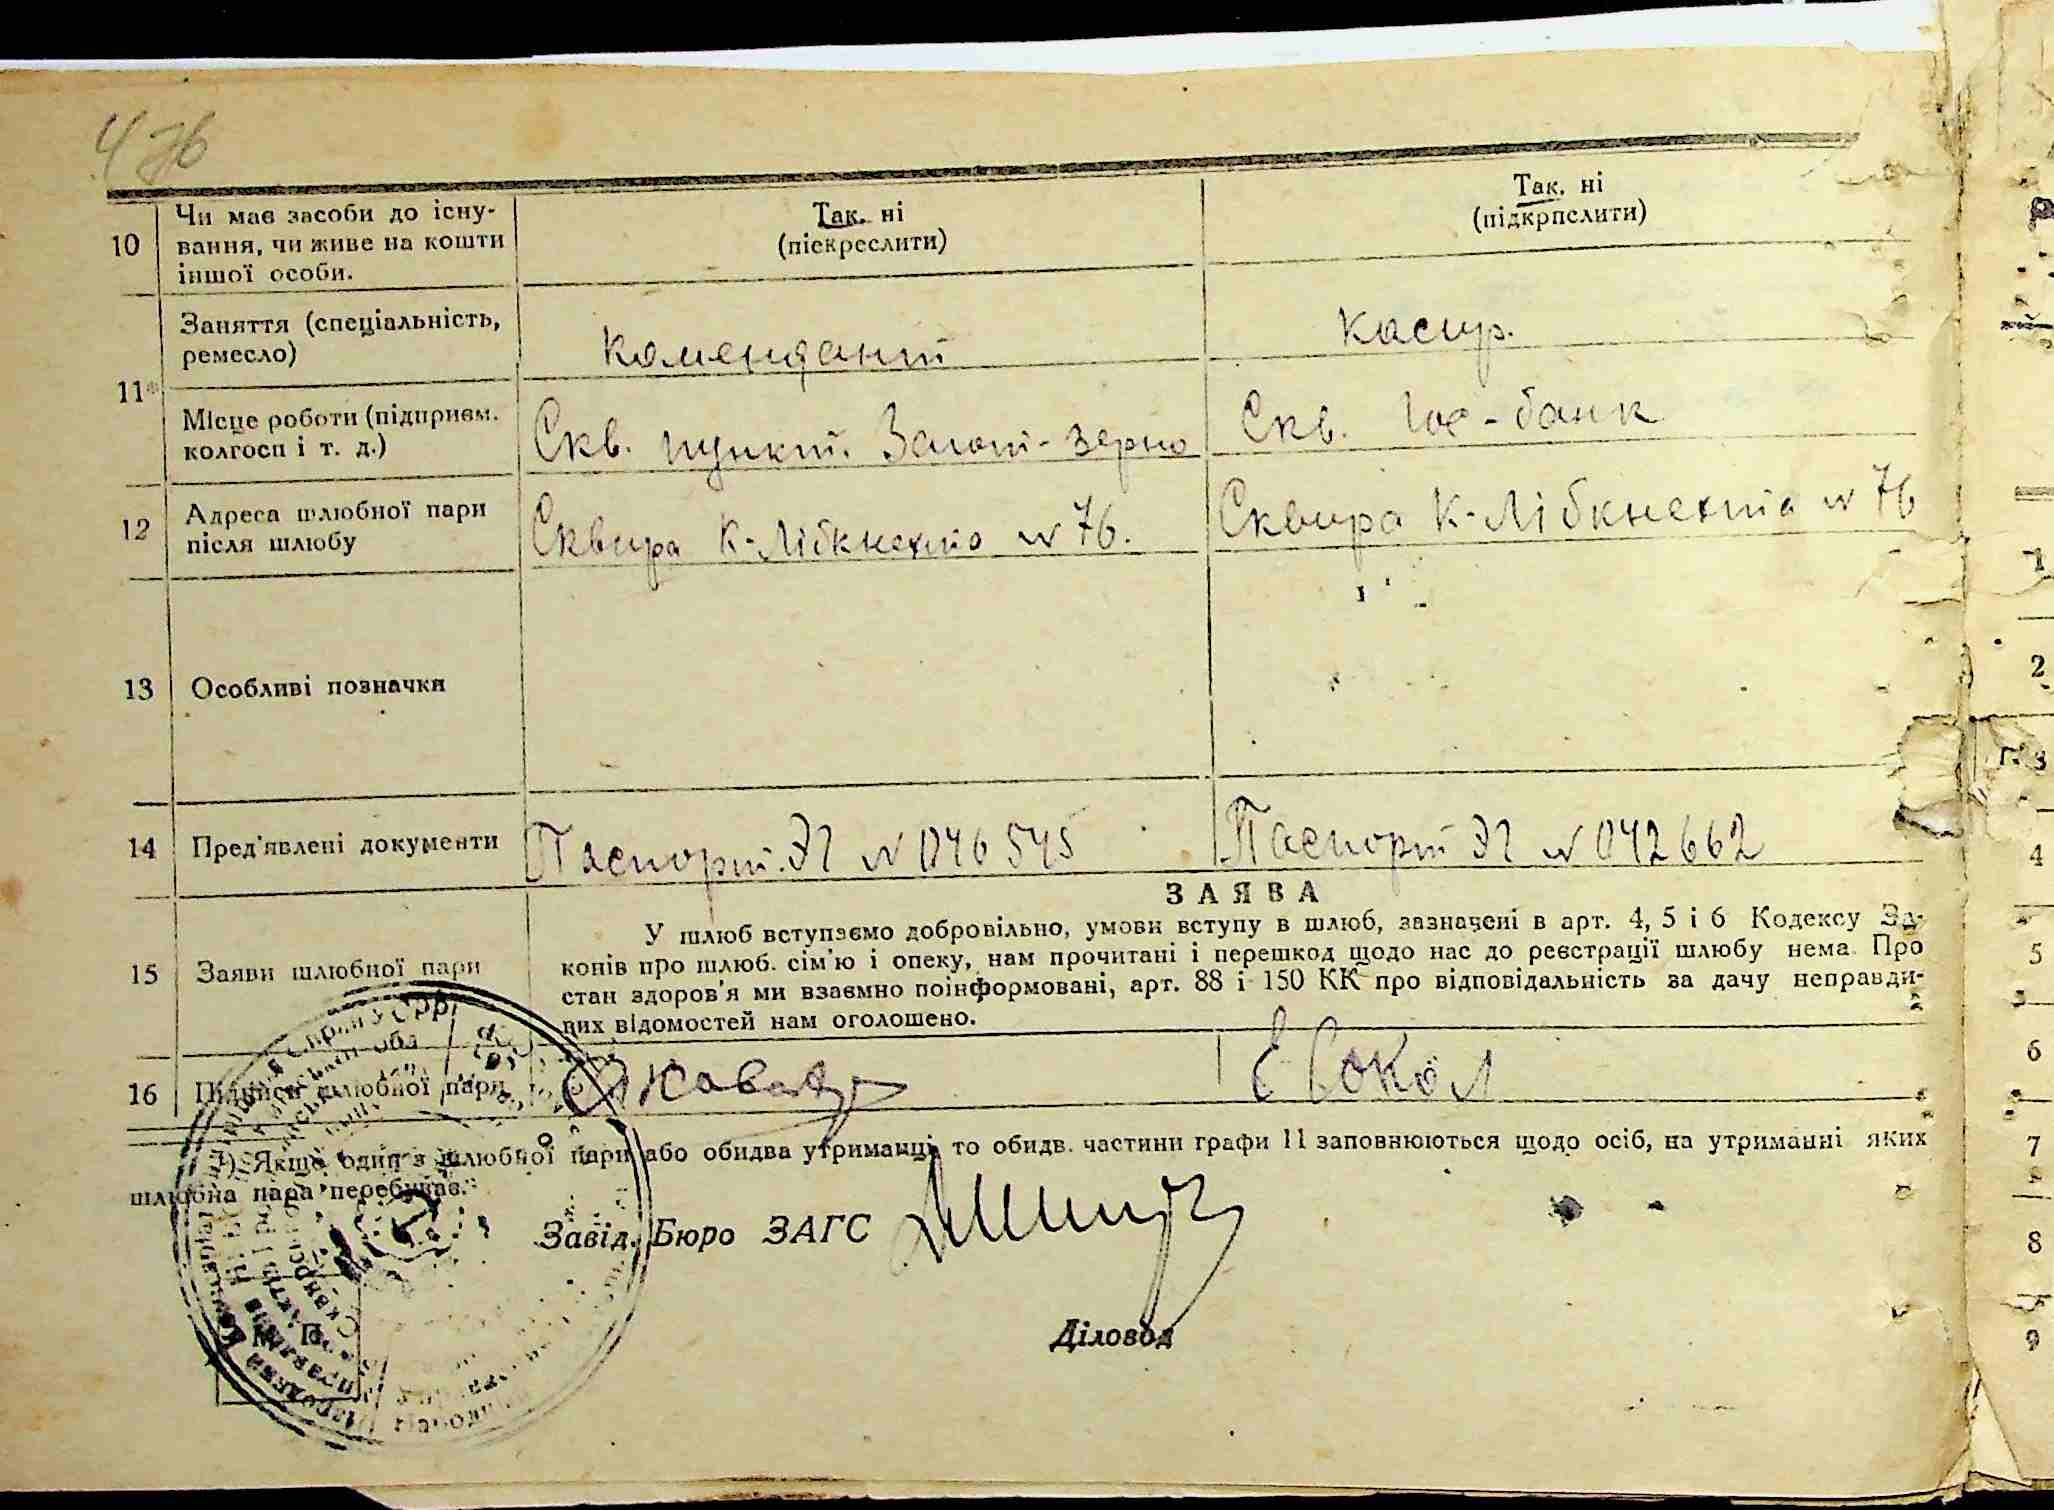 476
10 Чи має засоби до існу-
вання, чи живе на кошти
іншої особи.
Так. ні
(піскреслити)
Так. ні
(підкрпслити)
11*
Заняття (спеціальність,
ремесло)
комендант
касир.
Місце роботи (підприєм.
колгосп і т. д.)
Скв. пункт. Загот-зерно
Скв. -банк
12 Адреса шлюбної пари
після шлюбу
Сквира К-Лібкнехта № 76.
Сквира К-Лібкнехта № 76
13 Особливі позначки
14 Пред'явлені документи
Паспорт. № 046545
Паспорт № 042662
15 Заяви шлюбної пари
ЗАЯВА
У шлюб вступаємо добровільно, умови вступу в шлюб, зазначені в арт. 4, 5 і 6 Кодексу За-
конів про шлюб. сім'ю і опеку, нам прочитані і перешкод щодо нас до реєстрації шлюбу нема. Про
стан здоров'я ми взаємно поінформовані, арт. 88 і 150 КК про відповідальність за дачу неправди-
вих відомостей нам оголошено.
16 Підписи шлюбної пари
Е Сокол
*) Якщо один з шлюбної пари або обидва утриманці, то обидв. частини графи 11 заповнюються щодо осіб, на утриманні яких
шлюбна пара перебуває.
Завід. Бюро ЗАГС
М. П.
Діловод
1
2
3
4
5
6
7
8
9